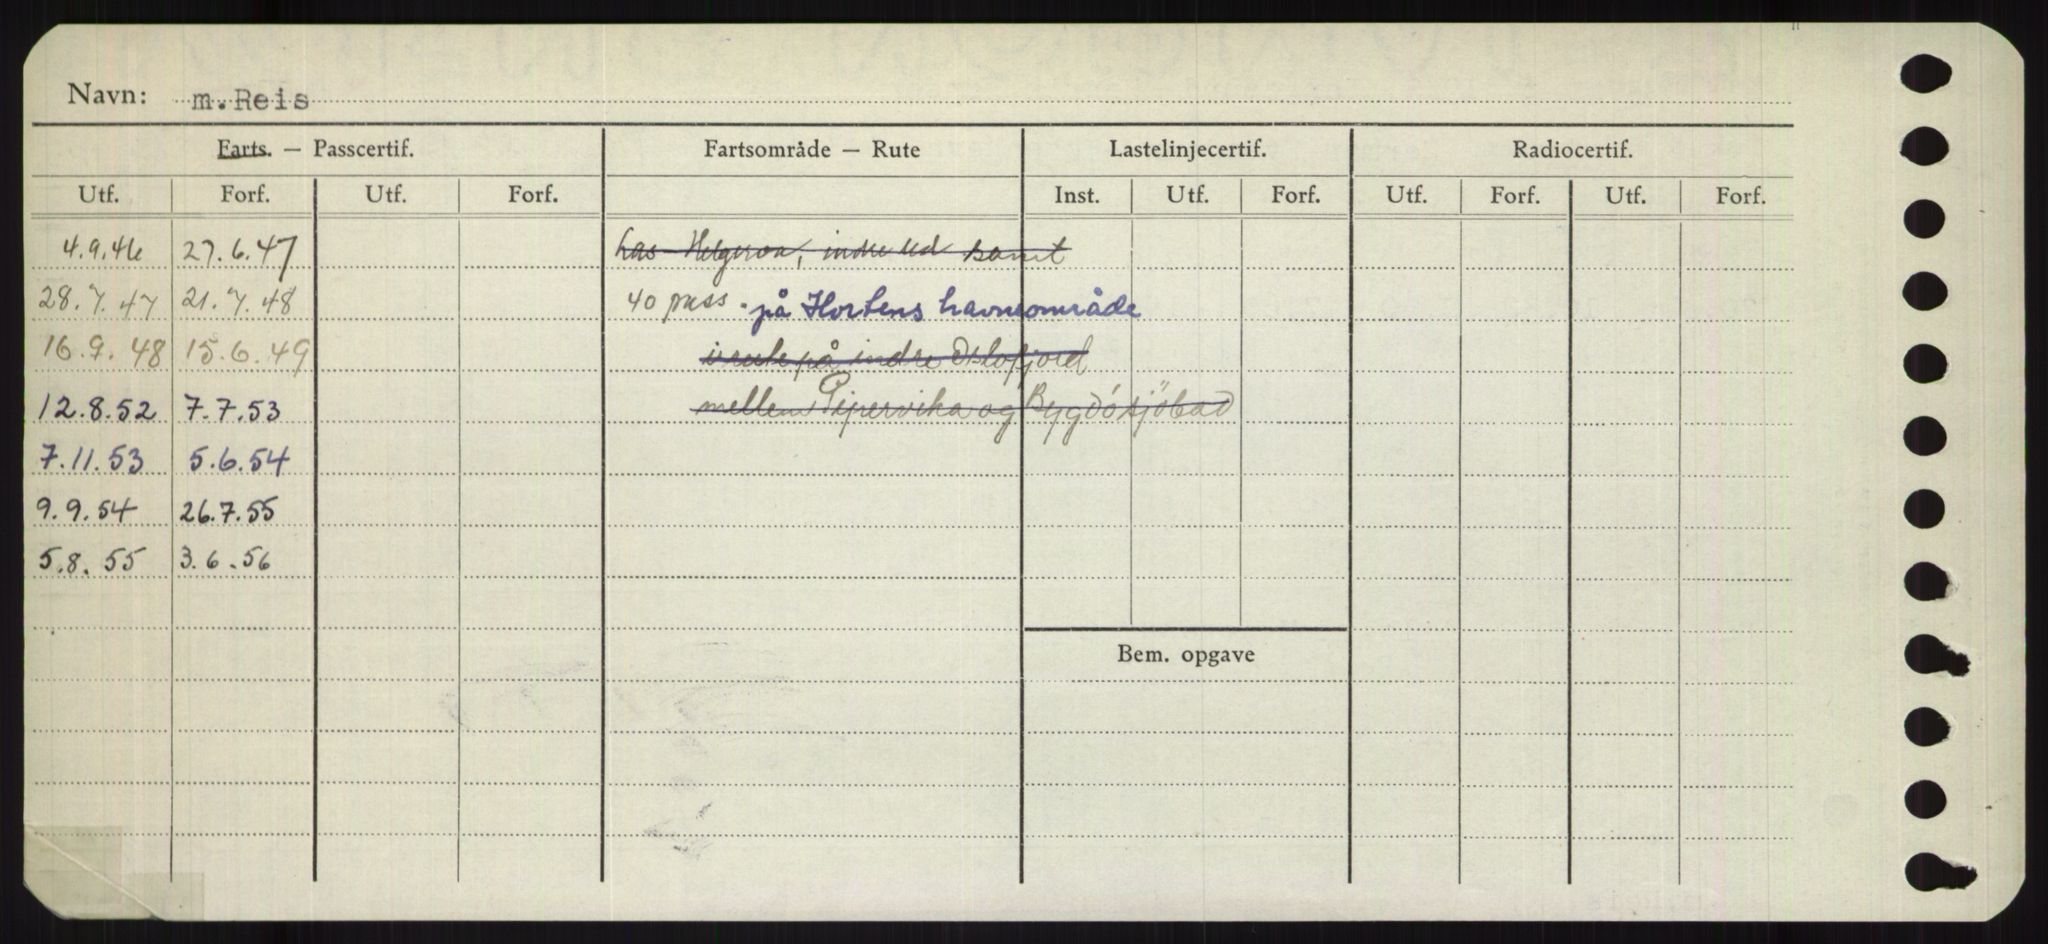 Navn: m.Reis
Farts. — Passcertif. Fartsområde — Rute Lastelinjecertif. Radiocertif.
Utf. Forf. Utf. Forf. Inst. Utf. Forf. Utf. Forf. Utf. Forf.
4.9.46 27.6.47 Helgeroa, indre led samt
28.7.47 21.7.48 40 pass. på Hortens havneområde
16.9.48 15.6.49 i rute på indre Oslofjord
12.8.52 7.7.53 mellem Pipervika og Bygdö sjöbad
7.11.53 5.6.54
9.9.54 26.7.55
5.8.55 3.6.56
Bem. opgave